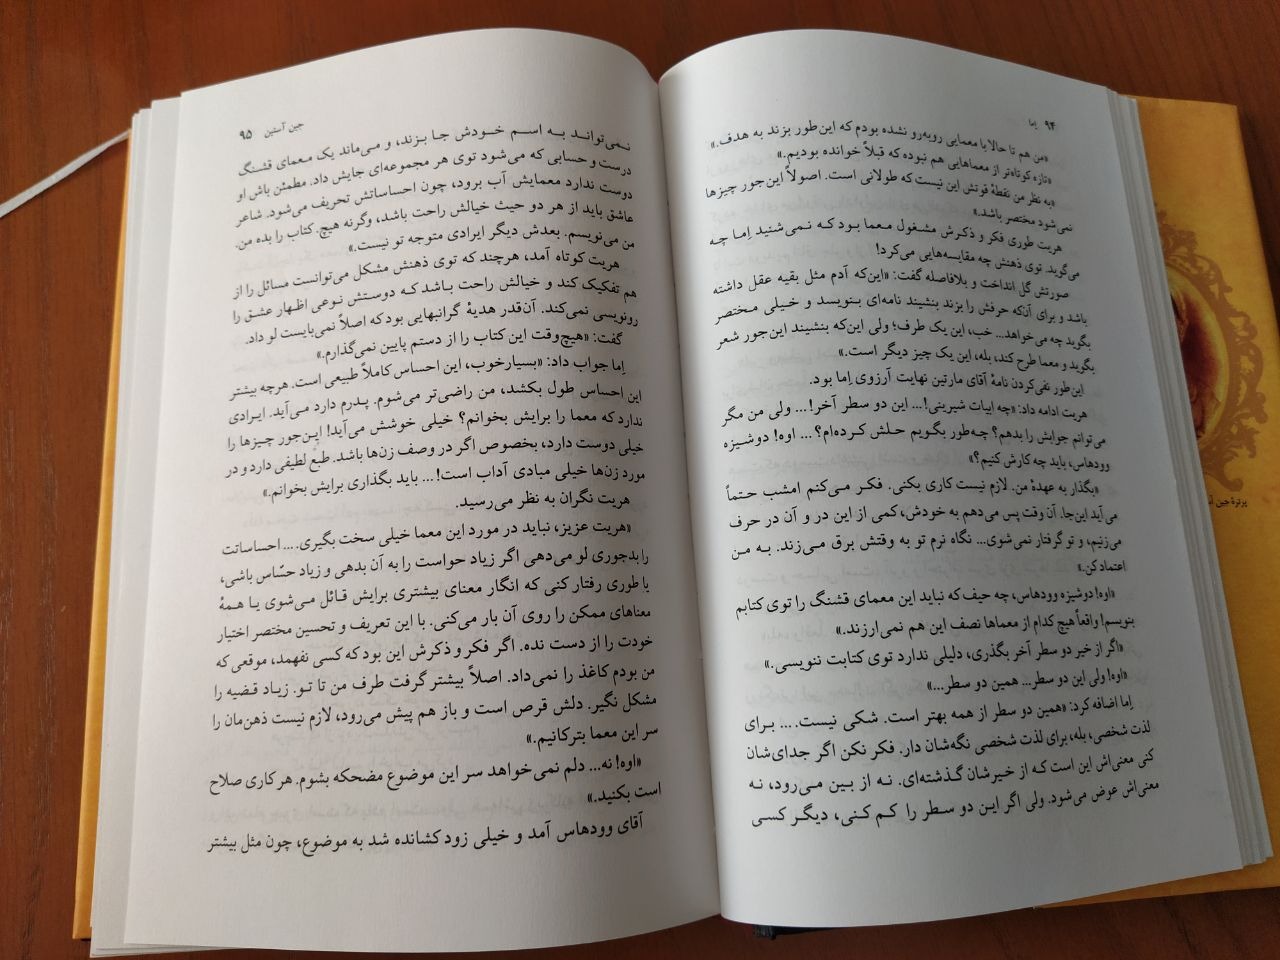 ۹۴ اِما
«من هم تا حالا با معمایی روبه‌رو نشده بودم که این‌طور بزند به هدف.»
«تازه کوتاه‌تر از معماهایی هم نبوده که قبلاً خوانده بودیم.»
«به نظر من نقطهٔ قوتش این نیست که طولانی است. اصولاً این‌جور چیزها
نمی‌شود مختصر باشد.»
هریت طوری فکر و ذکرش مشغول معما بود که نمی‌شنید اِما چه
می‌گوید. توی ذهنش چه مقایسه‌هایی می‌کرد!
صورتش گل انداخت و بلافاصله گفت: «این‌که آدم مثل بقیه عقل داشته
باشد و برای آنکه حرفش را بزند بنشیند نامه‌ای بنویسد و خیلی مختصر
بگوید چه می‌خواهد... خب، این یک طرف؛ ولی این‌که بنشیند این‌جور شعر
بگوید و معما طرح کند، بله، این یک چیز دیگر است.»
این‌طور نفی‌کردن نامهٔ آقای مارتین نهایت آرزوی اِما بود.
هریت ادامه داد: «چه ابیات شیرینی!... این دو سطر آخر!... ولی من مگر
می‌توانم جوابش را بدهم؟ چه‌طور بگویم حلش کرده‌ام؟... اوه! دوشیزه
وودهاس، باید چه کارش کنیم؟»
«بگذار به عهدهٔ من. لازم نیست کاری بکنی. فکر می‌کنم امشب حتماً
می‌آید این‌جا. آن وقت پس می‌دهم به خودش، کمی از این در و آن در حرف
می‌زنیم، و تو گرفتار نمی‌شوی... نگاه نرم تو به وقتش برق می‌زند. به من
اعتماد کن.»
«اوه! دوشیزه وودهاس، چه حیف که نباید این معمای قشنگ را توی کتابم
بنویسم! واقعاً هیچ کدام از معماها نصف این هم نمی‌ارزند.»
«اگر از خیر دو سطر آخر بگذری، دلیلی ندارد توی کتابت ننویسی.»
«اوه! ولی این دو سطر... همین دو سطر...»
اِما اضافه کرد: «همین دو سطر از همه بهتر است. شکی نیست.... برای
لذت شخصی، بله، برای لذت شخصی نگه‌شان دار. فکر نکن اگر جدای‌شان
کنی معنی‌اش این است که از خیرشان گذشته‌ای. نه از بین می‌رود، نه
معنی‌اش عوض می‌شود. ولی اگر این دو سطر را کم کنی، دیگر کسی
جین آستین ۹۵
نمی‌تواند به اسم خودش جا بزند، و می‌ماند یک معمای قشنگ
درست و حسابی که می‌شود توی هر مجموعه‌ای جایش داد. مطمئن باش او
دوست ندارد معمایش آب برود، چون احساساتش تحریف می‌شود. شاعر
عاشق باید از هر دو حیث خیالش راحت باشد، وگرنه هیچ. کتاب را بده من.
من می‌نویسم. بعدش دیگر ایرادی متوجه تو نیست.»
هریت کوتاه آمد، هرچند که توی ذهنش مشکل می‌توانست مسائل را از
هم تفکیک کند و خیالش راحت باشد که دوستش نوعی اظهار عشق را
رونویسی نمی‌کند. آن‌قدر هدیهٔ گرانبهایی بود که اصلاً نمی‌بایست لو داد.
گفت: «هیچ‌وقت این کتاب را از دستم پایین نمی‌گذارم.»
اِما جواب داد: «بسیارخوب، این احساس کاملاً طبیعی است. هرچه بیشتر
این احساس طول بکشد، من راضی‌تر می‌شوم. پدرم دارد می‌آید. ایرادی
ندارد که معما را برایش بخوانم؟ خیلی خوشش می‌آید! این‌جور چیزها را
خیلی دوست دارد، بخصوص اگر در وصف زن‌ها باشد. طبع لطیفی دارد و در
مورد زن‌ها خیلی مبادی آداب است!... باید بگذاری برایش بخوانم.»
هریت نگران به نظر می‌رسید.
«هریت عزیز، نباید در مورد این معما خیلی سخت بگیری.... احساساتت
را بدجوری لو می‌دهی اگر زیاد حواست را به آن بدهی و زیاد حسّاس باشی،
یا طوری رفتار کنی که انگار معنای بیشتری برایش قائل می‌شوی یا همهٔ
معناهای ممکن را روی آن بار می‌کنی. با این تعریف و تحسین مختصر اختیار
خودت را از دست نده. اگر فکر و ذکرش این بود که کسی نفهمد، موقعی که
من بودم کاغذ را نمی‌داد. اصلاً بیشتر گرفت طرف من تا تو. زیاد قضیه را
مشکل نگیر. دلش قرص است و باز هم پیش می‌رود، لازم نیست ذهن‌مان را
سر این معما بترکانیم.»
«اوه! نه... دلم نمی‌خواهد سر این موضوع مضحکه بشوم. هر کاری صلاح
است بکنید.»
آقای وودهاس آمد و خیلی زود کشانده شد به موضوع، چون مثل بیشتر
پرترهٔ جین آس